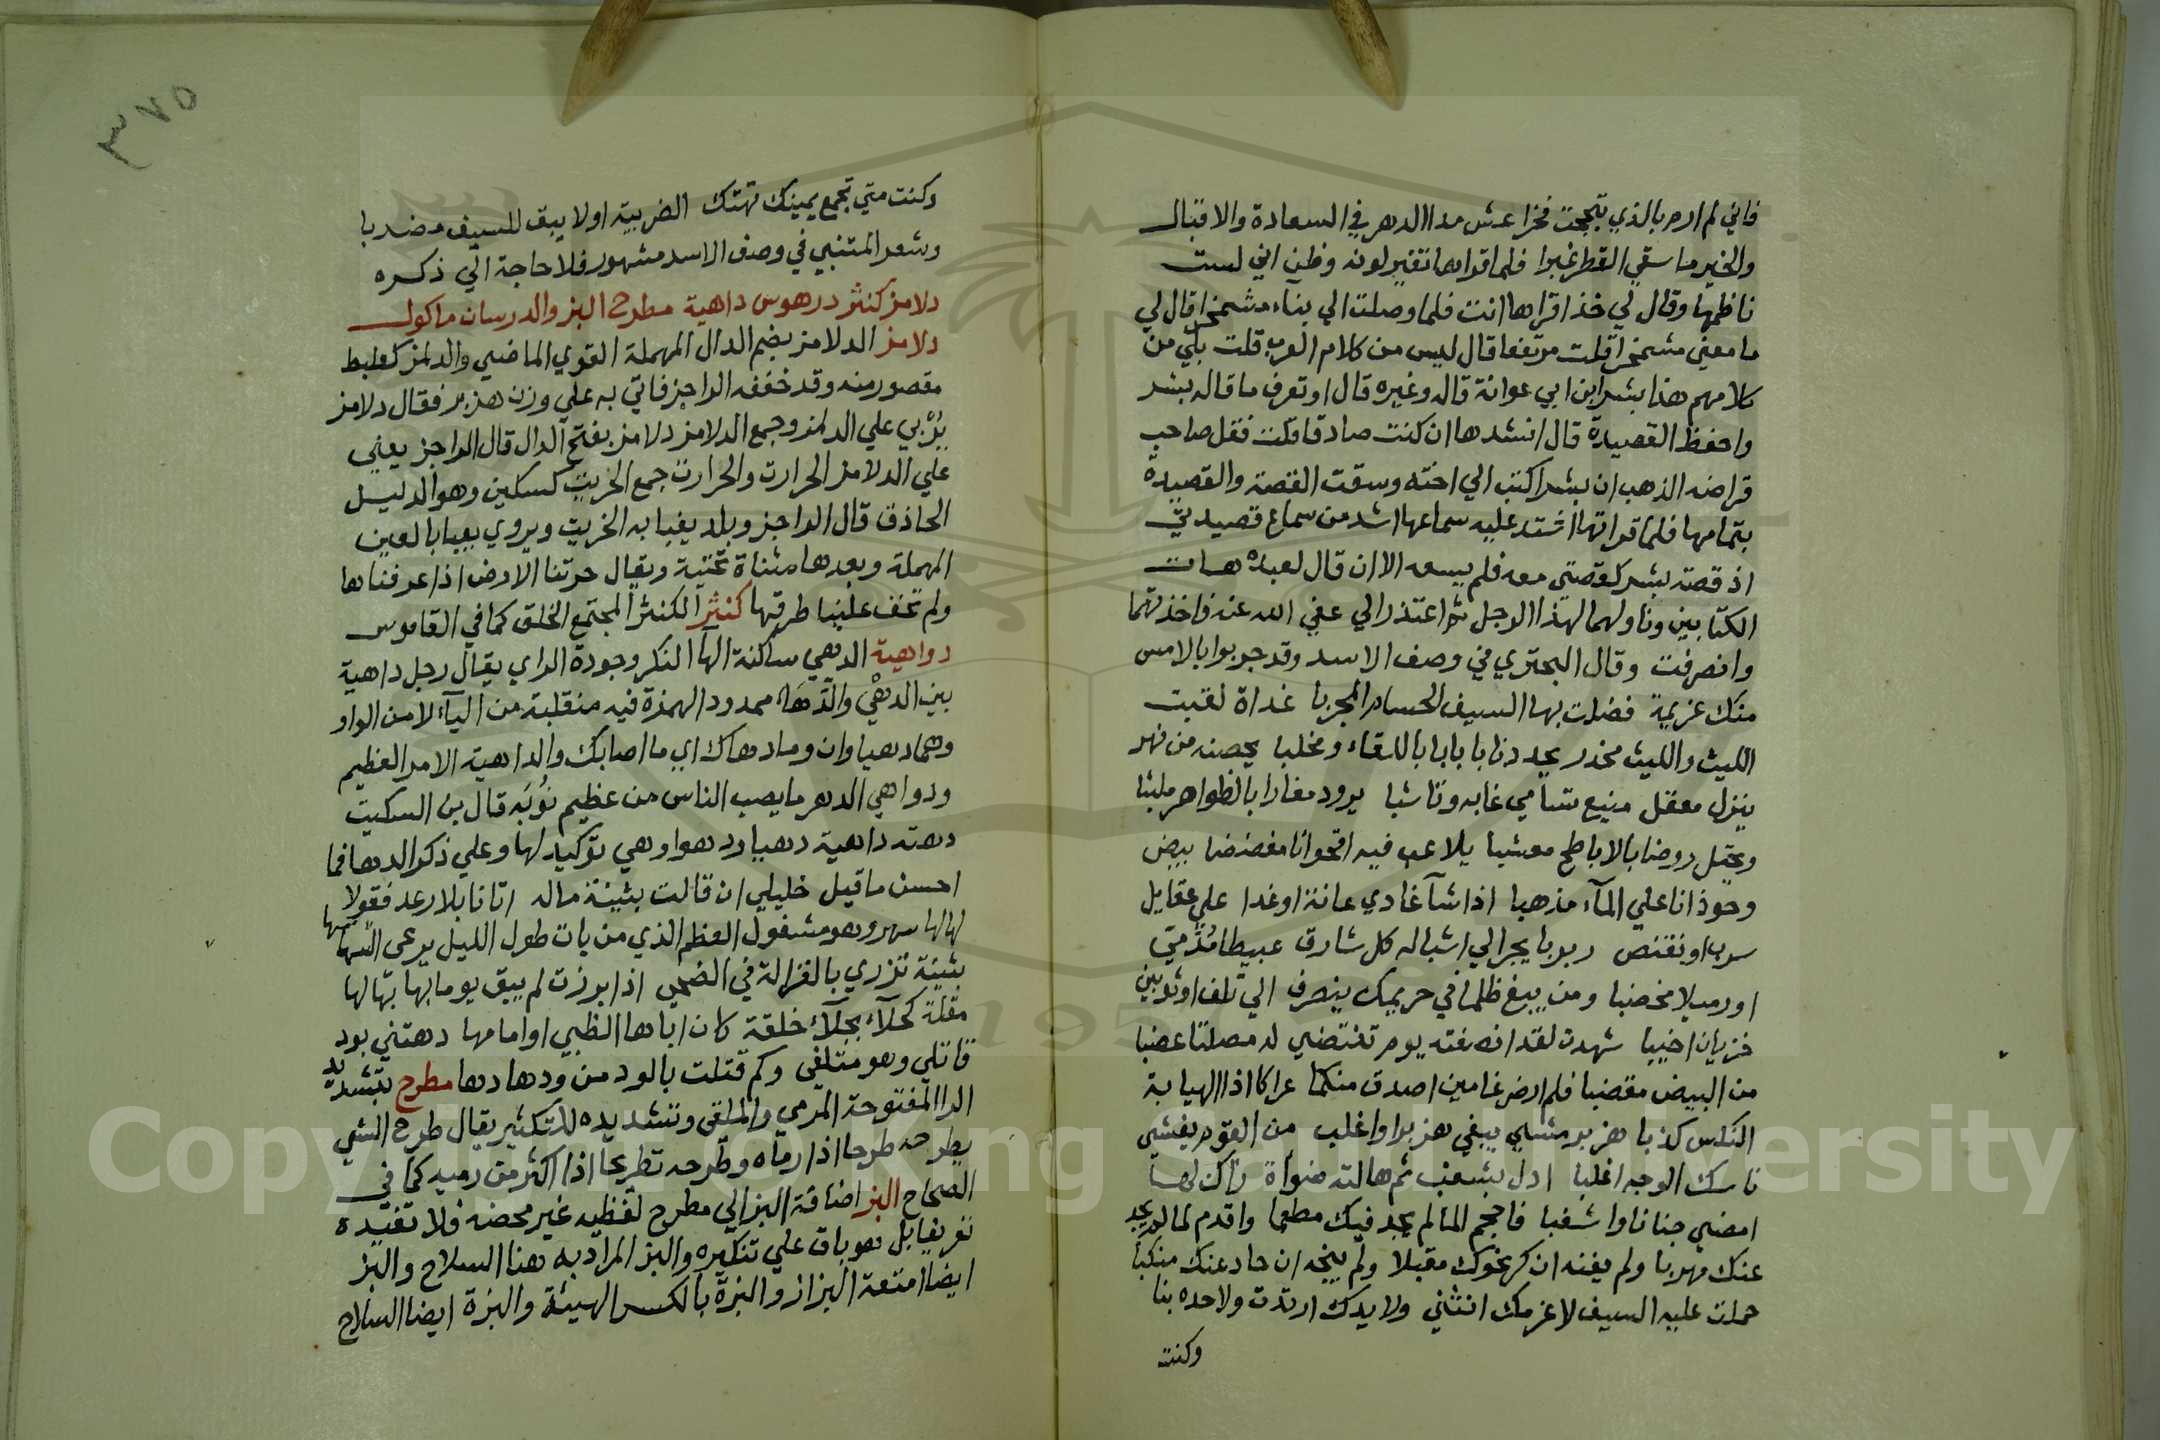 فاني لم ارم بالذي تبجحت فخرا عش مدا الدهر في السعادة والاقبال
والخير ما سقي القطر غبرا فلما قراها تغير لونه وظن اني لست
ناظمها وقال لي خذ اقراها انت فلما وصلت الي بناء مشمخرا قال لي
ما معني مشمخرا قلت مرتفعا قال ليس من كلام العرب قلت بلي من
كلامهم هذا بشر ابن ابي عوانة قاله وغيره قال او تعرف ما قاله بشر
واحفظ القصيدة قال انشدها ان كنت صادقا فكت فقل صاحب
قراضه الذهب ان بشرا كتب الي اخته وسقت القصة والقصيدة
بتمامها فلما قراتها اشتد عليه سماعها اشد من سماع قصيدتي
اذ قصة بشر كقصتي معه فلم يسعه الا ان قال لعبده هات
الكتابين وناولهما لهذا الرجل ثم اعتذر الي عفي الله عنه فاخذتهما
وانصرفت وقال البحتري في وصف الاسد وقد جربوا بالامس
منك عزيمة فضلت بها السيف الحسام المجربا غداة لقيت
الليث والليث مخدر يحدد نابا بابا باللقاء ومخلبا يحصنه من نهر
ينزل معقل منيع تسامي غابه وتاشبا يرود مغارا بالظواهر مليثا
ويحتل روضا بالاباطح معشبا يلاعب فيه اقحوانا مفضضا ببيض
وحوذانا علي المآء مذهبا اذا شآ غادي عانة اوغدا علي عقايل
سرب او نقنص ربربا يجر الي اشباله كل شارق عبيطا مُدَمّي
اورميلا مخضبا ومن يبغ ظلما في حريمك ينصرف الي تلف او ثوبين
خزيان اخيبا شهدت لقد انصفته يوم تنتضي له مصلتا عضبا
من البيض مقضبا فلم ارض غامين اصدق منكما عراكا اذا الهيابة
النكس كذبا هزبر مشي يبغي هزبرا واغلب من القوم يغشي
باسك الوجه اغلبا ادل بشغب ثم هالته صولة راك لها
امضي جنانا واشغبا فاحجم لما لم يجد فيك مطمعا واقدم لما لم يجد
عنك مهربا ولم يغنه ان كر نحوك مقبلا ولم ينجه ان حاد عنك منكبا
حملت عليه السيف لا عزمك انثني ولا يدك ارتدت ولا حده بنا
وكنت
٣٧٥
وكنت متي تجمع يمينك تهتك الضريبة اولا يبق للسيف مضربا
وشعر المتنبي في وصف الاسد مشهور فلا حاجة الي ذكره
دلامز كنثر درهوس داهية مطرح البز والدرسان ماكول
دلامز الدلامز بضم الدال المهملة القوي الماضي والدلمز كعلبط
مقصور منه وقد خففه الراجز فاتي به علي وزن هزبر فقال دلامز
يُرْبي علي الدلمز وجمع الدلامز دلامز بفتح الدال قال الراجز يعني
علي الدلامز الحرارت والحرارت جمع الخريت كسكين وهو الدليل
الحاذق قال الراجز وبلد يغبا به الخريت ويروي يعيا بالعين
المهملة وبعدها مثناة تحتية ويقال حرتنا الارض اذا عرفناها
ولم تخف علينا طرقها كنثر الكنثر المجتمع الخلق كما في القاموس
دواهية الدهي ساكنة الها النكر وجودة الراي يقال رجل داهية
بين الدهْي والدَهَاء ممدود الهمزة فيه منقلبة من اليآء لا من الواو
وهما دهياوان وما دهاك اي ما اصابك والداهية الامر العظيم
ودواهي الدهر ما يصب الناس من عظيم نُوَبَه قال بن السكيت
دهته داهية دهيا ودهوا وهي توكيد لها وعلي ذكر الدها فما
احسن ما قيل خليلي ان قالت بثينة ماله اتانا بلا وعد فقولا
لها لها سهر وهو مشغول لعظم الذي من بات طول الليل يرعي السهاسها
بثينة تزري بالغزالة في الضحي اذا برزت لم يبق يوما بها بهالها
مقلة كحلآء نجلآء خلقة كان اباها الظبي او امامها دهتني بود
قاتلي وهو متلفي وكم قتلت بالود من ودها دها مطرح بتشديد
الرا المفتوحة المرمي والملقي وتشديده للتكثير يقال طرح الشي
يطرحه طرحا اذا رماه وطرحه تطريحا اذا اكثر من رميه كما في
الصحاح البز اضافة البز الي مطرح لفظيه غير محضه فلا تفيده
تعريفا بل هو باق علي تنكيره والبز المراد به هنا السلاح والبز
ايضا امتعة البزاز والبزة بالكسر الهيئة والبزة ايضا السلاح
Copyright © King Saud University
1957